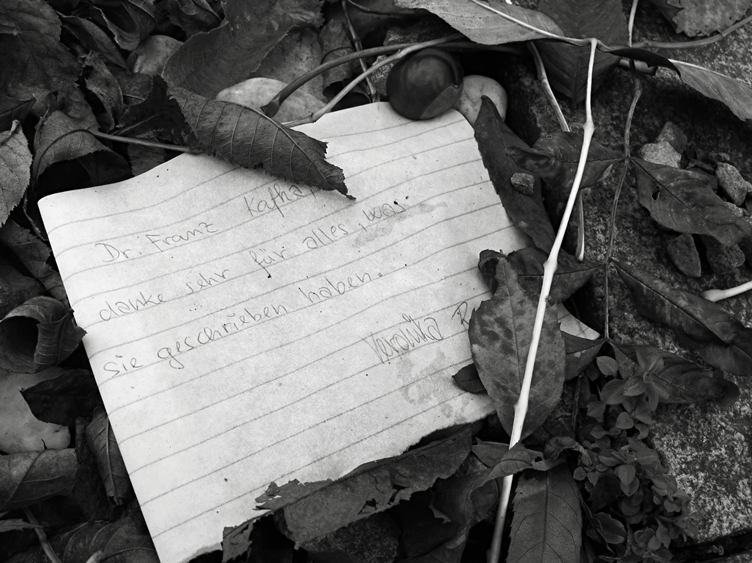 Dr. Franz Kafka
danke sehr für alles, was
sie geschrieben haben.
Veronika